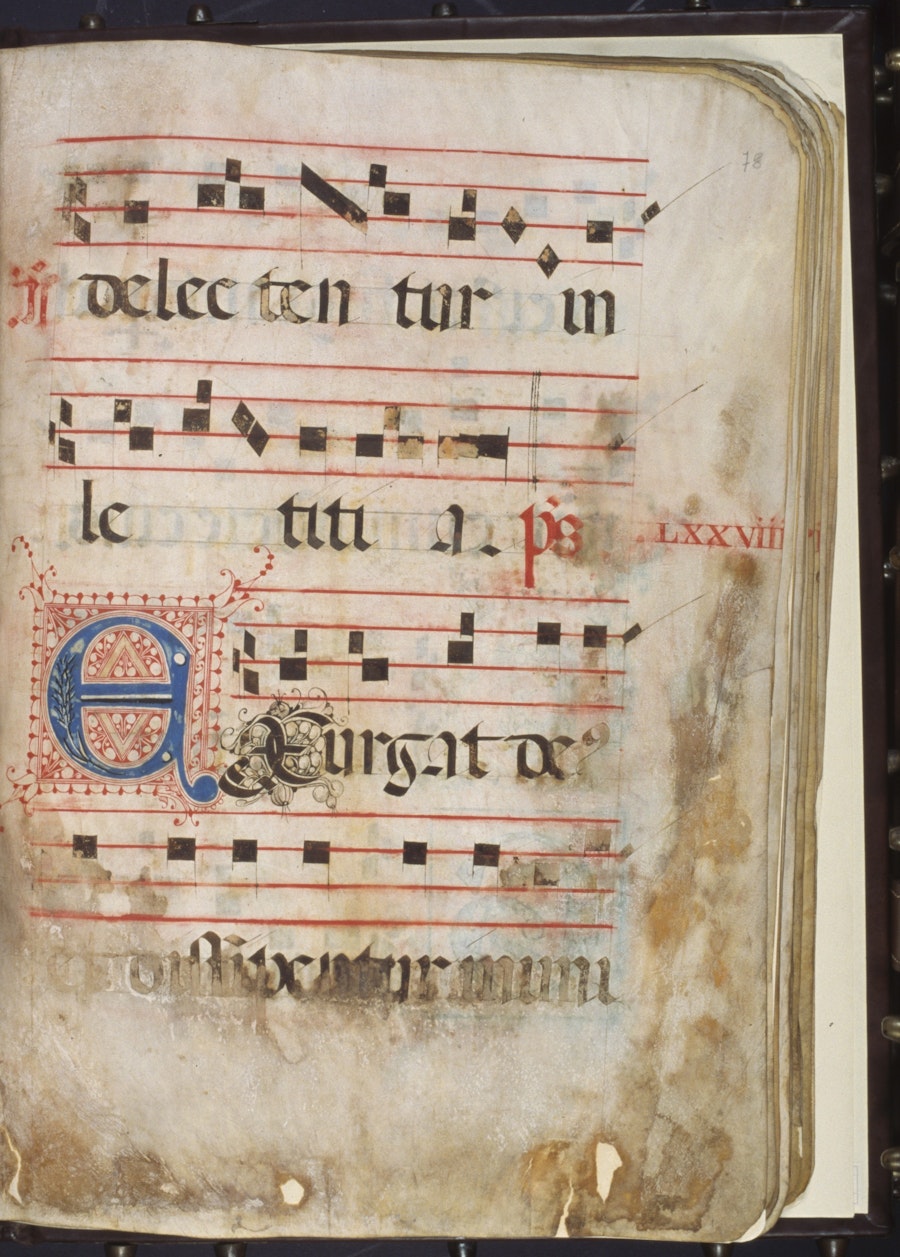 78
delec ten tur in
le titi a. ps
LXXVIII
EXurgat deꝰ
et dissipentur inimi